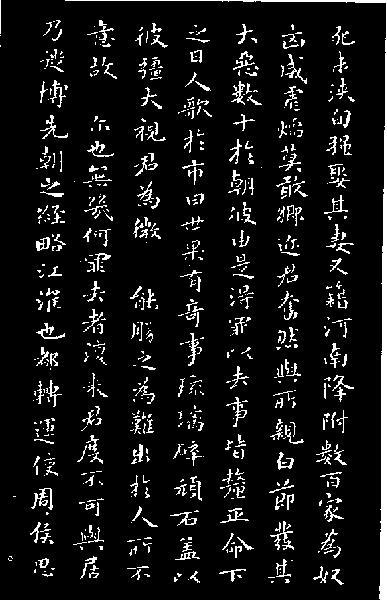 死未浹旬強娶其妻又籍河南降附數百家為奴
凶威虐焰莫敢鄉近君奮然與所親白節發其
大惡數十於朝彼由是得罪以去事皆釐正命下
之日人歌於市曰世果有奇事琉璃碎頑石蓋以
彼彊大視君為微 能勝之為難出於人所不
意故 尒也無幾何罪去者復来君度不可與居
乃遊博先朝之經略江淮也都轉運使周侯思